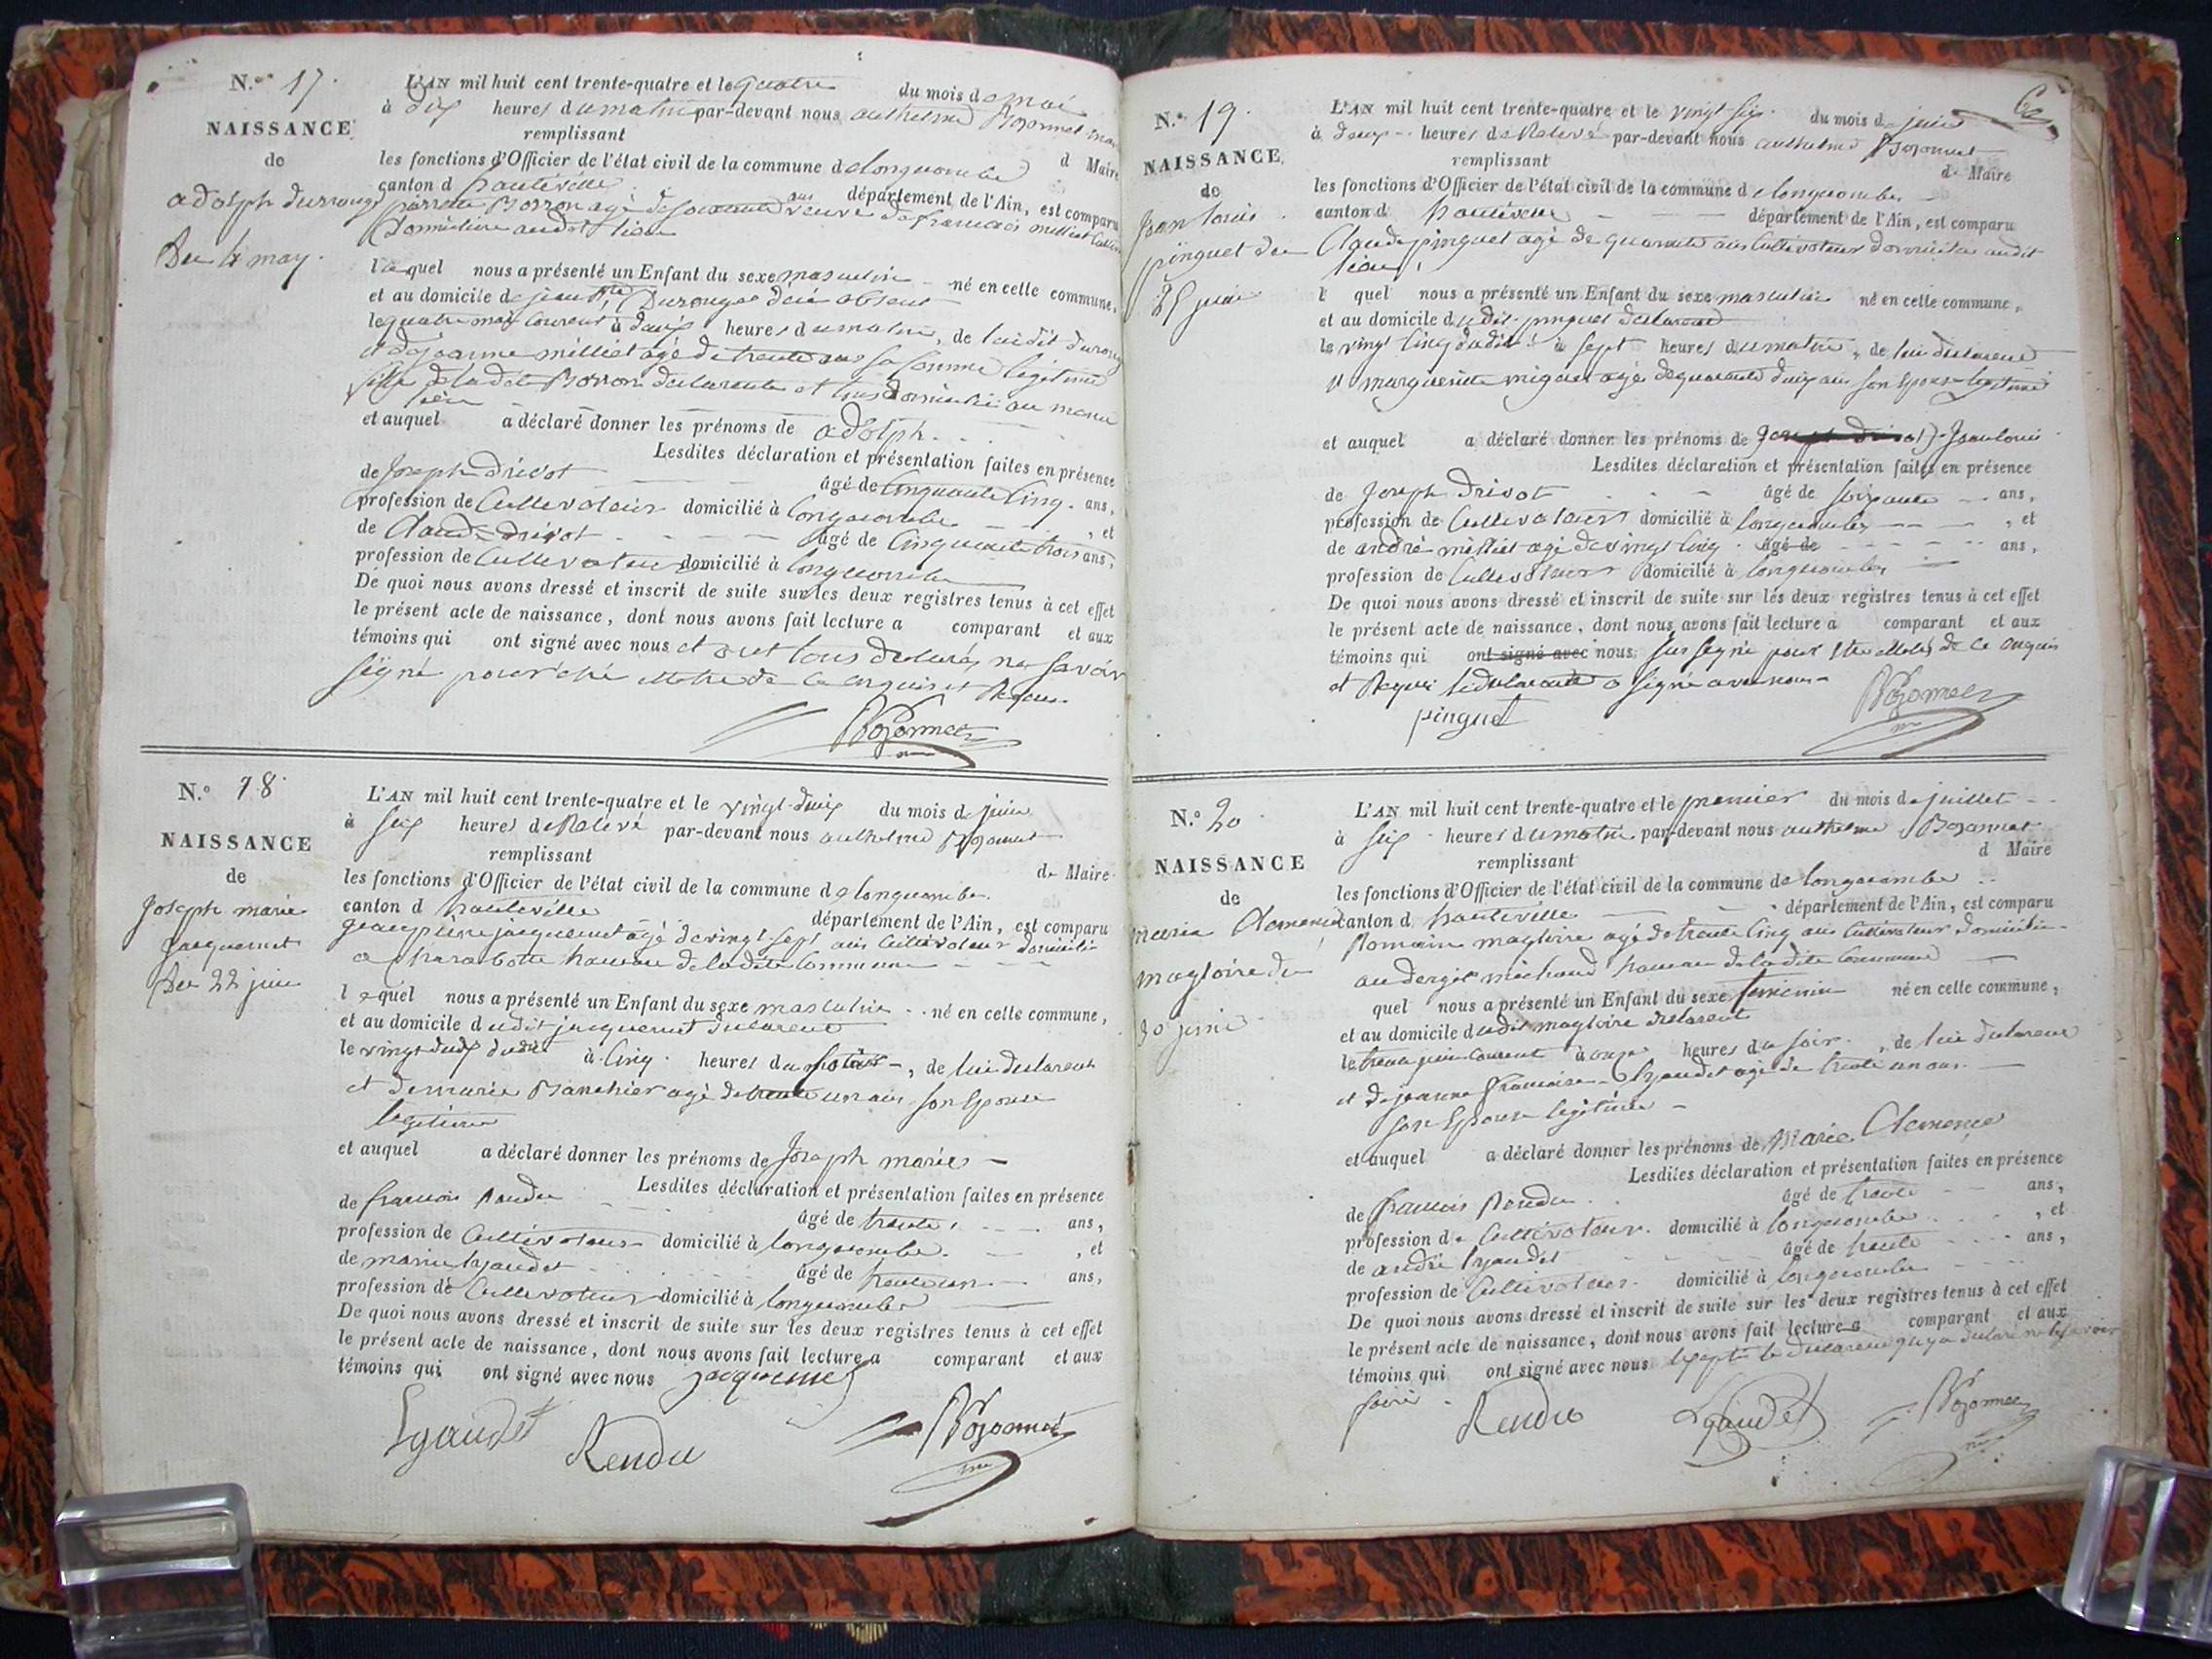 N.° 17.
NAISSANCE
de
adolph durouge
Du 4 may.
L'AN mil huit cent trente-quatre et le quatre du mois de mai
à dix heures du matin par-devant nous anthelme Bozonnet
remplissant
les fonctions d'Officier de l'état civil de la commune de longecombe d Maire
canton d hauteville département de l'Ain, est comparu
agé de soixante ans veuve de francois milliet
domiciliée audit lieu
laquel nous a présenté un Enfant du sexe masculin né en cette commune,
et au domicile de absent
le quatre mai courant à deux heures du matin, de
et de jeanne milliet agé de trente ans sa femme légitime
fille de la dite declarante et tous domicilié au meme
lieu
et auquel a déclaré donner les prénoms de adolph.
Lesdites déclaration et présentation faites en présence
de Joseph drivot âgé de cinquante cinq ans,
profession de Cultivateur domicilié à longecombe , et
de Claude drivot âgé de cinquante trois ans,
profession de Cultivateur domicilié à longecombe
De quoi nous avons dressé et inscrit de suite sur les deux registres tenus à cet effet
le présent acte de naissance, dont nous avons fait lecture a comparant et aux
témoins qui ont signé avec nous et ont tous declarés ne savoir
signé de ce enquis et Requis.
Bozonnet
N.° 18.
NAISSANCE
de
Joseph marie
jacquemet
Du 22 juin
L'AN mil huit cent trente-quatre et le vingt-deux du mois de juin
à six heures de Relevé par-devant nous anthelme Bozonnet
remplissant de Maire
les fonctions d'Officier de l'état civil de la commune de longecombe.
canton d hauteville département de l'Ain, est comparu
jean pierre jacquemet agé de vingt sept ans Cultivateur domicilié
a charabotte hameau de ladite Commune
lequel nous a présenté un Enfant du sexe masculin né en cette commune,
et au domicile dudit jacquemet declarant
le vingt deux dudit à cinq heures du , de lui declarant
et de marie agé de trente un ans son Epouse
legitime
et auquel a déclaré donner les prénoms de Joseph marie
Lesdites déclaration et présentation faites en présence
de francois Rendu âgé de trente ans,
profession de Cultivateur domicilié à longecombe. , et
de marin lyaudet âgé de trente un ans,
profession de Cultivateur domicilié à longecombe
De quoi nous avons dressé et inscrit de suite sur les deux registres tenus à cet effet
le présent acte de naissance, dont nous avons fait lecture a comparant et aux
témoins qui ont signé avec nous jacquemet
Lyaudet Rendu Bozonnet
N.° 19.
NAISSANCE
de
Jean louis
pinguet du
25 juin
L'AN mil huit cent trente-quatre et le vingt six du mois de juin
à deux heures de Relevé par-devant nous anthelme Bozonnet
remplissant de Maire
les fonctions d'Officier de l'état civil de la commune de longecombe
canton d hauteville département de l'Ain, est comparu
Claude pinguet agé de quarante ans Cultivateur domicilié audit
lieu,
l quel nous a présenté un Enfant du sexe masculin né en cette commune,
et au domicile dudit pinguet declarant
le vingt cinq dudit à sept heures du matin, de lui declarant
et marguerite agé de quarante deux ans son Epouse legitime
et auquel a déclaré donner les prénoms de Jean louis
Lesdites déclaration et présentation faites en présence
de Joseph Drivot âgé de soixante ans,
profession de Cultivateur domicilié à longecombe , et
de andré milliet agé de vingt cinq âgé de ans,
profession de Cultivateur domicilié à longecombe
De quoi nous avons dressé et inscrit de suite sur les deux registres tenus à cet effet
le présent acte de naissance, dont nous avons fait lecture a comparant et aux
témoins qui ont signé avec nous de ce enquis
et Requis le declarant a signé avec nous
pinguet Bozonnet
N.° 20
NAISSANCE
de
marie Clemence
magloire du
30 juin
L'AN mil huit cent trente-quatre et le premier du mois de juillet
à six heures du matin par-devant nous anthelme Bozonnet
remplissant d Maire
les fonctions d'Officier de l'état civil de la commune de longecombe
canton d hauteville département de l'Ain, est comparu
Romain magloire agé de trente cinq ans Cultivateur domicilié
au michaud hameau de ladite Commune
quel nous a présenté un Enfant du sexe feminin né en cette commune,
et au domicile dudit magloire declarant
le trente juin courant à onze heures du soir, de lui declarant
et de jeanne francoise lyaudet agé de trente un ans
son Epouse legitime
et auquel a déclaré donner les prénoms de Marie Clemence
Lesdites déclaration et présentation faites en présence
de francois Rendu âgé de trente ans,
profession de Cultivateur domicilié à longecombe , et
de andré lyaudet âgé de trente ans,
profession de Cultivateur domicilié à longecombe
De quoi nous avons dressé et inscrit de suite sur les deux registres tenus à cet effet
le présent acte de naissance, dont nous avons fait lecture a comparant et aux
témoins qui ont signé avec nous excepté le declarant qui a declaré ne le savoir
faire.
Rendu Lyaudet Bozonnet